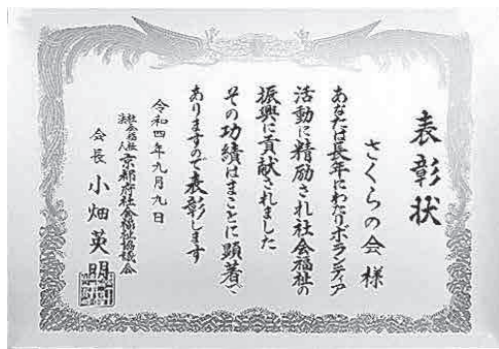 表彰状
さくらの会 様
あなたは長年にわたりボランティア
活動に精励され社会福祉の
振興に貢献されました
その功績はまことに顕著で
ありますので表彰します
令和四年九月九日
社会福祉法人 京都府社会福祉協議会
会長 小畑英明